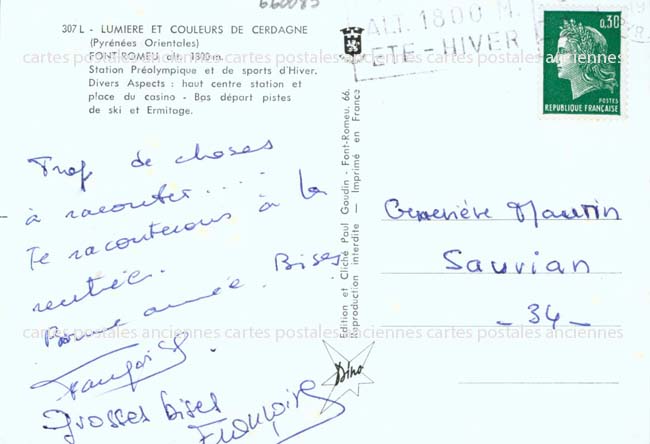 660085
307 L - LUMIERE ET COULEURS DE CERDAGNE
(Pyrénées Orientales)
FONT-ROMEU, alt. 1800 m.
Station Préolympique et de sports d'Hiver.
Divers Aspects : haut centre station et
place du casino - Bas départ pistes
de ski et Ermitage.
Trop de choses
à raconter....
Te raconterons à la
rentrée.
Bonne année. Bises
Françoise
Grosses bises
Françoise
Edition et Cliché Paul Gaudin - Font-Romeu. 66.
Reproduction interdite — Imprimé en France
Dino
ALT. 1800 M.
ETE - HIVER
0,30
POSTES
REPUBLIQUE FRANÇAISE
Geneviève Maurin
Sauvian
- 34 -
cartes postales anciennes cartes postales anciennes cartes postales anciennes
cartes postales anciennes cartes postales anciennes cartes postales anciennes